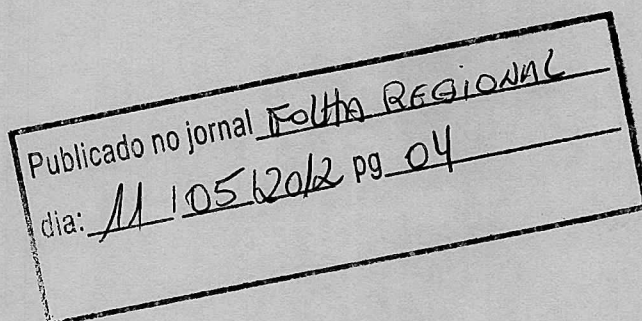 Publicado no jornal FOLHA REGIONAL
dia: 11/05/2012 pg 04